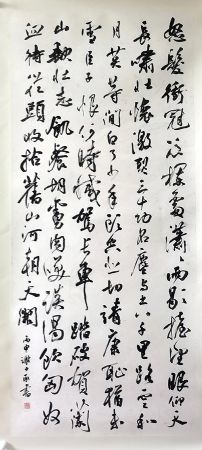 怒髮衝冠凭欄處瀟瀟雨歇抬望眼仰天
長嘯壯懷激烈三十功名塵與土八千里路雲和
月莫等閒白了少年頭空悲切靖康恥猶未
雪臣子恨何時滅駕長車踏破賀蘭
山缺壯志飢餐胡虜肉笑談渴飲匈奴
血待從頭收拾舊山河朝天闕
書